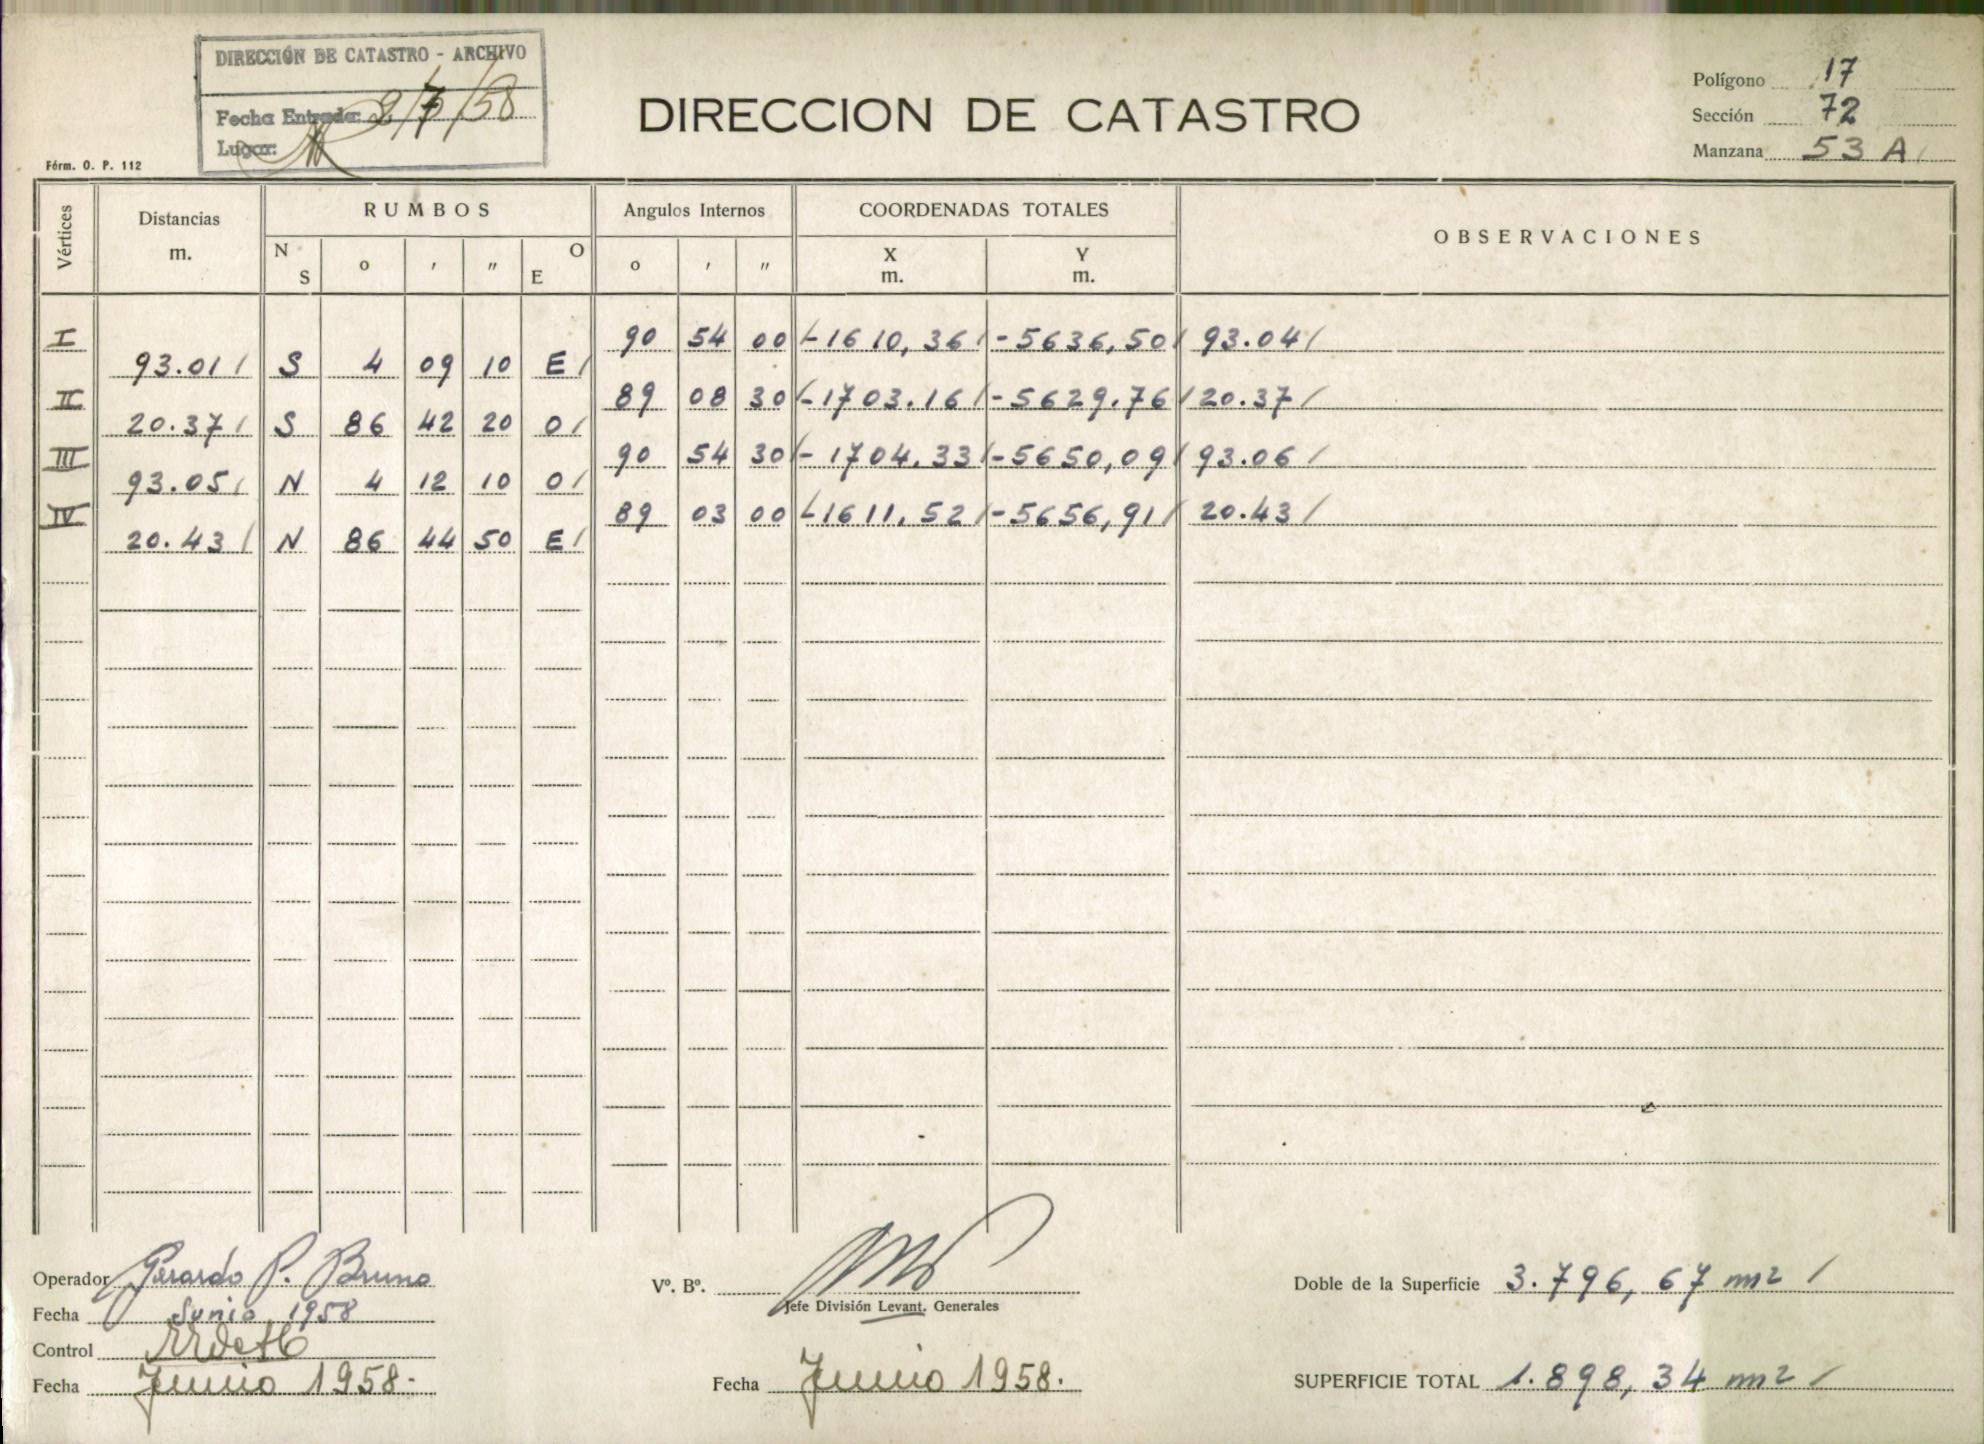 DIRECCIÓN DE CATASTRO - ARCHIVO
Fecha Entrada: 2/7/58
Lugar:
Férm. O. P. 112
DIRECCION DE CATASTRO
Polígono 17
Sección 72
Manzana 53 A
Vértices Distancias m. RUMBOS Angulos Internos COORDENADAS TOTALES OBSERVACIONES
N S o ′ ″ O E o ′ ″ X m. Y m.
I 90 54 00 -1610,36 -5636,50 93.04
93.01 S 4 09 10 E
II 89 08 30 -1703.16 -5629.76 20.37
20.37 S 86 42 20 O
III 90 54 30 -1704.33 -5650,09 93.06
93.05 N 4 12 10 O
IV 89 03 00 -1611,52 -5656,91 20.43
20.43 N 86 44 50 E
Operador Gerardo P. Bruno
Fecha Junio 1958
Control
Fecha Junio 1958.
Vº. Bº.
Jefe División Levant. Generales
Fecha Junio 1958.
Doble de la Superficie 3.796,67 m2
SUPERFICIE TOTAL 1.898,34 m2